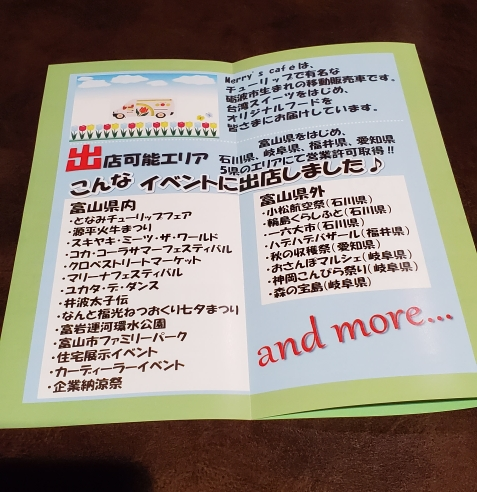 Merry's cafeは、
チューリップで有名な
砺波市生まれの移動販売車です。
台湾スイーツをはじめ、
オリジナルフードを
皆さまにお届けしています。
出店可能エリア
富山県をはじめ、
石川県、岐阜県、福井県、愛知県
5県のエリアにて営業許可取得!!
こんな イベントに出店しました♪
富山県内
・となみチューリップフェア
・源平火牛まつり
・スキヤキ・ミーツ・ザ・ワールド
・コカ・コーラサマーフェスティバル
・クロベストリートマーケット
・マリーナフェスティバル
・ユカタ・デ・ダンス
・井波太子伝
・なんと福光ねつおくり七夕まつり
・富岩運河環水公園
・富山市ファミリーパーク
・住宅展示イベント
・カーディーラーイベント
・企業納涼祭
富山県外
・小松航空祭(石川県)
・輪島くらしふと(石川県)
・一六大市(石川県)
・ハデハデバザール(福井県)
・秋の収穫祭(愛知県)
・おさんぽマルシェ(岐阜県)
・神岡こんぴら祭り(岐阜県)
・森の宝島(岐阜県)
and more...